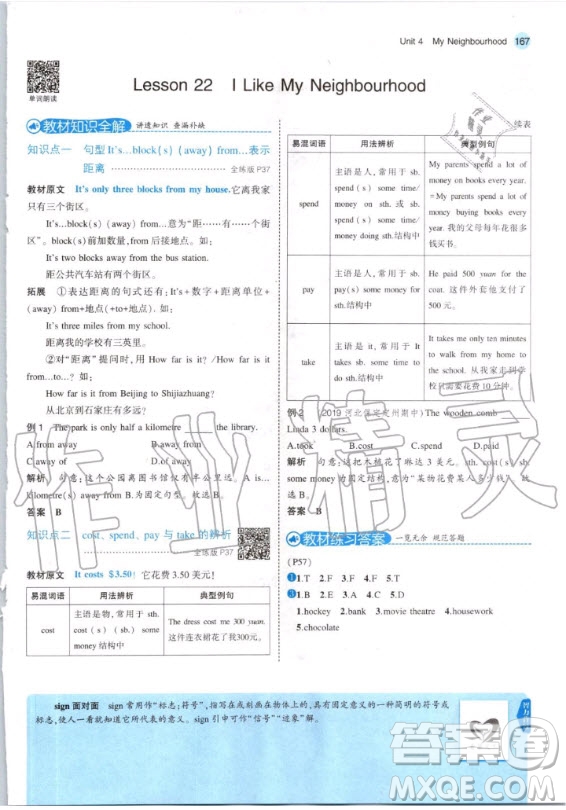 Unit 4 My Neighbourhood 167
单词朗读
Lesson 22 I Like My Neighbourhood
教材知识全解 讲透知识 查漏补缺
知识点一 句型It's…block(s) (away) from…表示
距离 全练版P37
教材原文 It's only three blocks from my house.它离我家
只有三个街区。
It's…block(s) (away) from…意为“距……有……个街
区”。block(s)前加数量,from后接地点。如:
It's two blocks away from the bus stop.
距公共汽车站有两个街区。
拓展 ①表达距离的句式还有:It's+数字+距离单位+
(away) from+地点(+to+地点). 如:
It's three miles from my school.
距离我的学校有三英里。
②对“距离”提问时,用 How far is it? /How far is it
from…to…? 如:
How far is it from Beijing to Shijiazhuang?
从北京到石家庄有多远?
例1 The park is only half a kilometre the library.
A.from away B.away from
C.away of D.of away
解析 句意:这个公园离图书馆仅有半公里远。A is…
kilometre(s) away from B为固定结构。故选B。
答案 B
知识点二 cost、spend、pay与take的辨析
全练版P37
教材原文 It costs $3.50! 它花费3.50美元!
易混词语 用法辨析 典型例句
cost
主语是物,常用于 sth.
cost(s) (sb.) some
money结构中
The dress cost me 300 yuan.
这件连衣裙花了我300元。
续表
易混词语 用法辨析 典型例句
spend
主语是人,常用于 sb.
spend(s) some time/
money on sth.或 sb.
spend(s) some time/
money doing sth.结构中
My parents spend a lot of
money on books every year.
=My parents spend a lot of
money buying books every
year. 我的父母每年花很多
钱买书。
pay
主语是人,常用于 sb.
pay(s) some money for
sth.结构中
He paid 500 yuan for the
coat. 这件外套他支付了
500元。
take
主语是 it,常用于 It
takes sb. some time to
do sth.结构中
It takes me only ten minutes
to walk from my home to
school. 从我家步行到学
校只需要花费10分钟。
例2 (2019河北保定定州期中)The wooden comb
Linda 3 dollars.
A.took B.cost C.spend D.paid
解析 句意:这把木梳花了琳达3美元。sth. cost(s) sb.
some money为固定结构,意为“某物花费某人多少钱”。
故选B。
答案 B
教材练习答案 一览无余 规范答题
(P57)
1 1.T 2.F 3.F 4.T 5.F
3 1.B 2.E 3.A 4.C 5.D
1.hockey 2.bank 3.movie theatre 4.housework
5.chocolate
sign面对面 sign常用作“标志;符号”,指写在或刻画在物体上的,具有固定意义的一种简明的符号或
标志,使人一看就知道它所代表的意义。sign引申可作“信号”“迹象”解。
作业精灵
答案圈
MXQE.COM